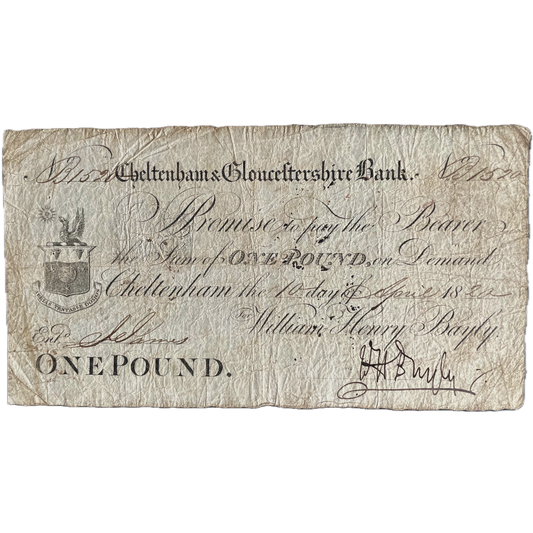 Cheltenham & Gloucestershire Bank.
I Promise to pay the Bearer
the Sum of ONE POUND, on Demand
Cheltenham the 10 day of April 1820
William Henry Bayly.
Entd.
ONE POUND.
WHBayly